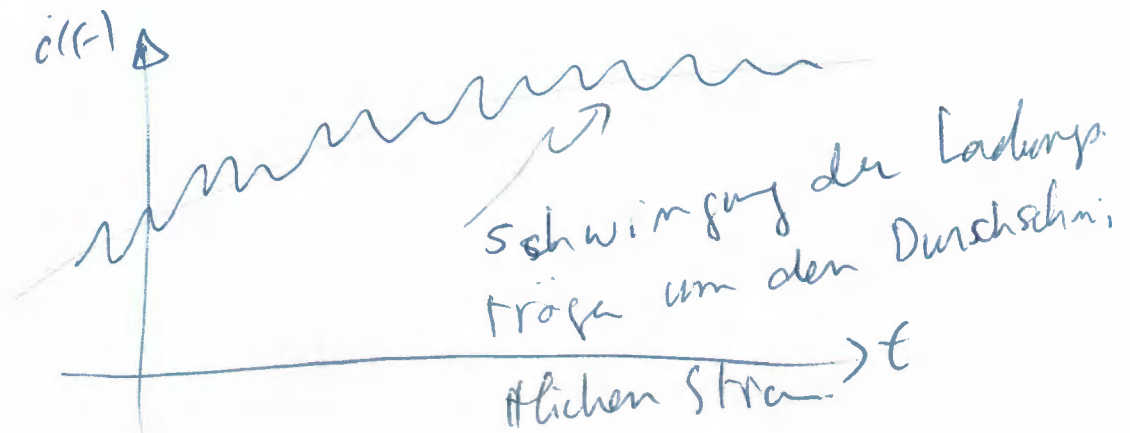 i(t)
Schwingung der Ladungs.
träger um den Durschschni
t
ttlichen Strom.